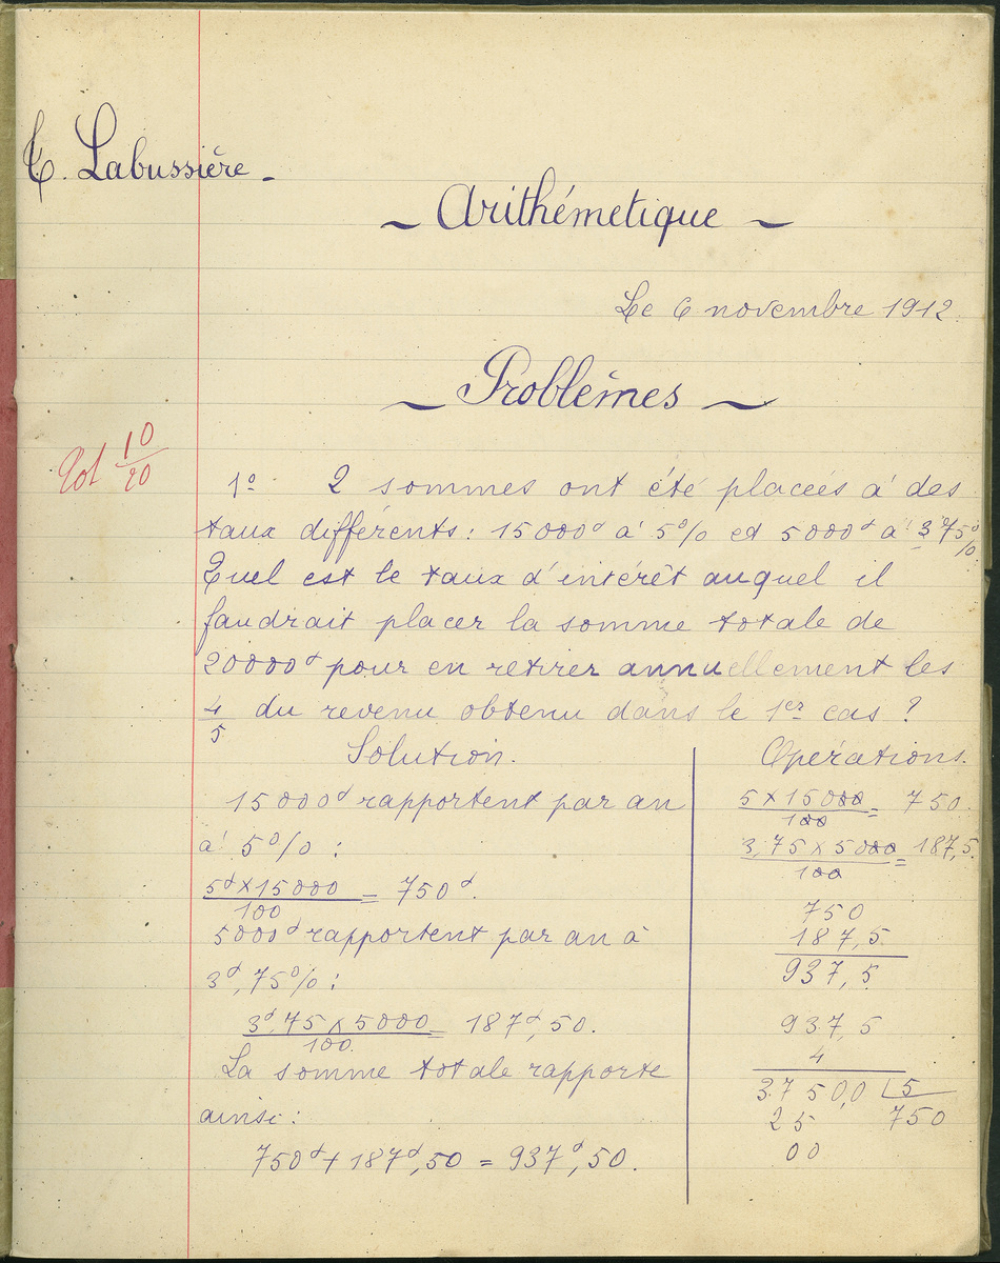 Labussière.
~ Arithémetique ~
Le 6 novembre 1912.
~ Problèmes ~
10
20
1º 2 sommes ont été placées à des
taux différents : 15000ᶠ à 5% et 5000ᶠ à 3ᶠ75%
Quel est le taux d'intérêt auquel il
faudrait placer la somme totale de
20000ᶠ pour en retirer annuellement les
4/5 du revenu obtenu dans le 1er cas ?
Solution.
15000ᶠ rapportent par an
à 5% :
5ᶠ×15000/100 = 750ᶠ.
5000ᶠ rapportent par an à
3ᶠ,75% :
3ᶠ,75 × 5000/100 = 187ᶠ,50.
La somme totale rapporte
ainsi :
750ᶠ + 187ᶠ,50 = 937ᶠ,50.
Opérations.
5 × 15000/100 = 750
3,75 × 5000/100 = 187,5
750
187,5
937,5
937,5
4
3750,0 | 5
25 750
00